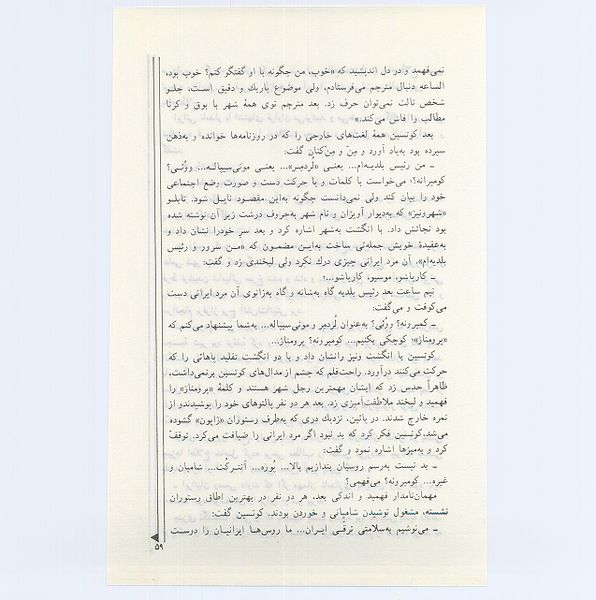 نمی‌فهمد و در دل اندیشید که «خوب، من چگونه با او گفتگو کنم؟ خوب بود،
الساعه دنبال مترجم می‌فرستادم، ولی موضوع باریك و دقیق است، جلـو
شخص ثالث نمی‌توان حرف زد. بعد مترجم توی همهٔ شهر با بوق و کرنا
مطالب را فاش می‌کند.»
بعد کوتسین همهٔ لغت‌های خارجی را که در روزنامه‌ها خوانده و به‌ذهن
سپرده بود به‌یاد آورد و مِنّ و مِنّ‌کنان گفت:
ـ من رئیس بلدیه‌ام... یعنـی «لُردمِر»... یعنـی مونی‌سیپالـه... ووُئـی؟
کومپرانه؟، می‌خواست با کلمات و با حرکت دست و صورت وضع اجتماعی
خود را بیان کند ولی نمی‌دانست چگونه به‌این مقصـود نایـل شود. تابلـو
«شهرونیز» که‌به‌دیوار آویزان و نام شهر به‌حروف درشت زیر آن نوشته شده
بود نجاتش داد. با انگشت به‌شهر اشاره کرد و بعد سرِ خودرا نشان داد و
به‌عقیدهٔ خویش جمله‌ئی ساخت به‌ایـن مضمـون که «مـن سَرور و رئیس
بلدیه‌ام»، آن مرد ایرانی چیزی درك نکرد ولی لبخندی زد و گفت:
ـ کارپاشو، موسیو، کارپاشو...
نیم ساعت بعد رئیس بلدیه گاه به‌شانه و گاه به‌زانوی آن مرد ایرانی دست
می‌کوفت و می‌گفت:
ـ کمپرونه؟ ووُئی؟ به‌عنوان لُردمِر و مونی‌سیپاله... به‌شما پیشنهاد می‌کنم که
«پرومناژ» کوچکی بکنیم... کومپرونه؟ پرومناژ...
کوتسین با انگشت ونیز رانشان داد و با دو انگشت تقلید پاهائی را که
حرکت می‌کنند درآورد. راحت‌قلم که چشم از مدال‌های کوتسین برنمی‌داشت،
ظاهراً حدس زد که ایشان مهمترین رجل شهر هستند و کلمهٔ «پرومناژ» را
فهمید و لبخند ملاطفت‌آمیزی زد. بعد هر دو نفر پالتوهای خود را پوشیدندو از
نمره خارج شدند. در پائین، نزدیك دری که به‌طرف رستوران «ژاپون» گشوده
می‌شد،کوتسین فکر کرد که بد نبود اگر مرد ایرانی را ضیافت می‌کرد. توقف
کرد و به‌میزها اشاره نمود و گفت:
ـ بد نیست به‌رسم روسیان بندازیم بالا... پُوره... آنتـرکت... شامپان و
غیره... کومپرونه؟ می‌فهمی؟
مهمان‌نامدار فهمید و اندکی بعد، هر دو نفر در بهترین اطاق رستوران
نشسته، مشغول نوشیدن شامپانی و خوردن بودند. کوتسین گفت:
ـ می‌نوشیم به‌سلامتی ترقّـی ایـران... ما روس‌هـا ایرانیـان را دوسـت
۵۹